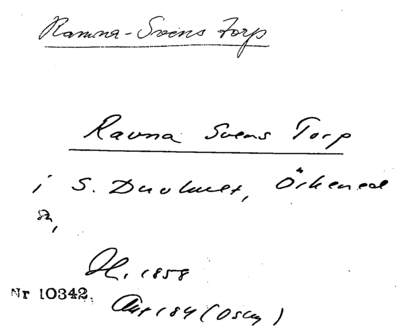 Ramna-Svens Torp
Ravna Svens Torp
i S. Duvhult, Örkened
sn,
H. 1858
Nr 10342.
Ant 184 (Osby)